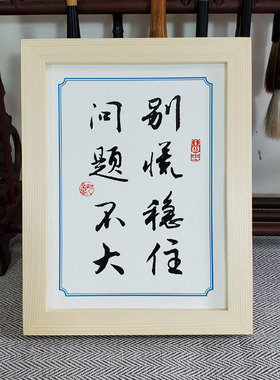 别慌稳住
问题不大